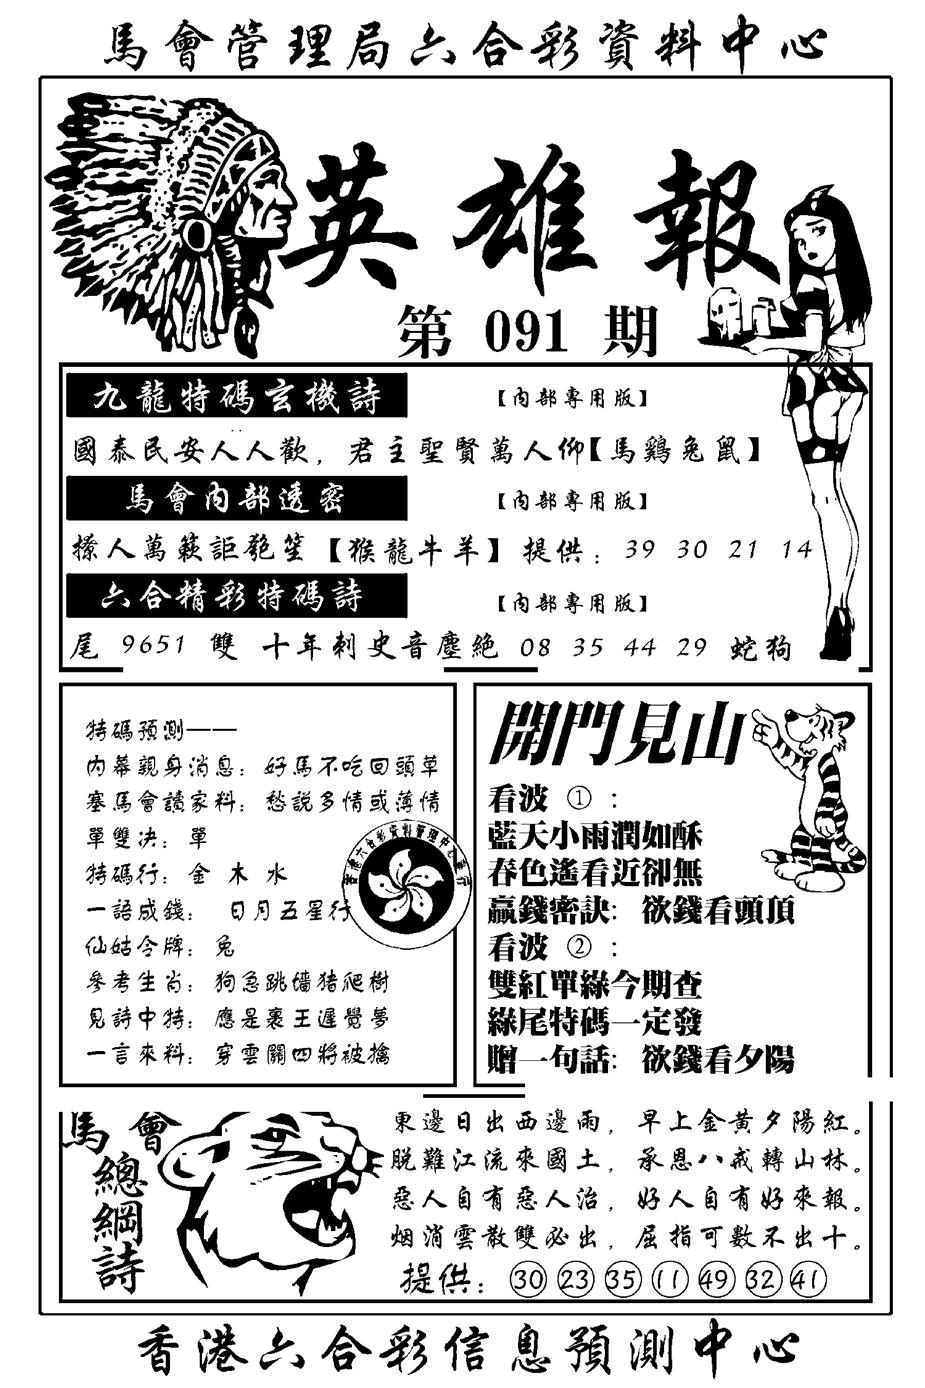 馬會管理局六合彩資料中心
英雄報
第 091 期
九龍特碼玄機詩 【內部專用版】
國泰民安人人歡，君主聖賢萬人仰【馬鷄兔鼠】
馬會內部透密 【內部專用版】
撩人萬簌詎匏笙【猴龍牛羊】提供：39 30 21 14
六合精彩特碼詩 【內部專用版】
尾 9651 雙 十年刺史音塵絶 08 35 44 29 蛇狗
特碼預測——
內幕親身消息：好馬不吃回頭草
塞馬會讀家料：愁説多情或薄情
單雙决：單
特碼行：金 木 水
一語成錢： 日月五星行
仙姑令牌：兔
參考生肖：狗急跳墻猪爬樹
見詩中特：應是裹王遲覺夢
一言來料：穿雲關四將被擒
開門見山
看波 ①：
藍天小雨潤如酥
春色遙看近卻無
贏錢密訣：欲錢看頭頂
看波 ②：
雙紅單綠今期查
綠尾特碼一定發
贈一句話：欲錢看夕陽
馬會
總綱詩
東邊日出西邊雨，早上金黃夕陽紅。
脫難江流來國土，承恩八戒轉山林。
惡人自有惡人治，好人自有好來報。
烟消雲散雙必出，屈指可數不出十。
提供：㉚ ㉓ ㉟ ⑪ ㊾ ㉜ ㊶
香港六合彩信息預測中心